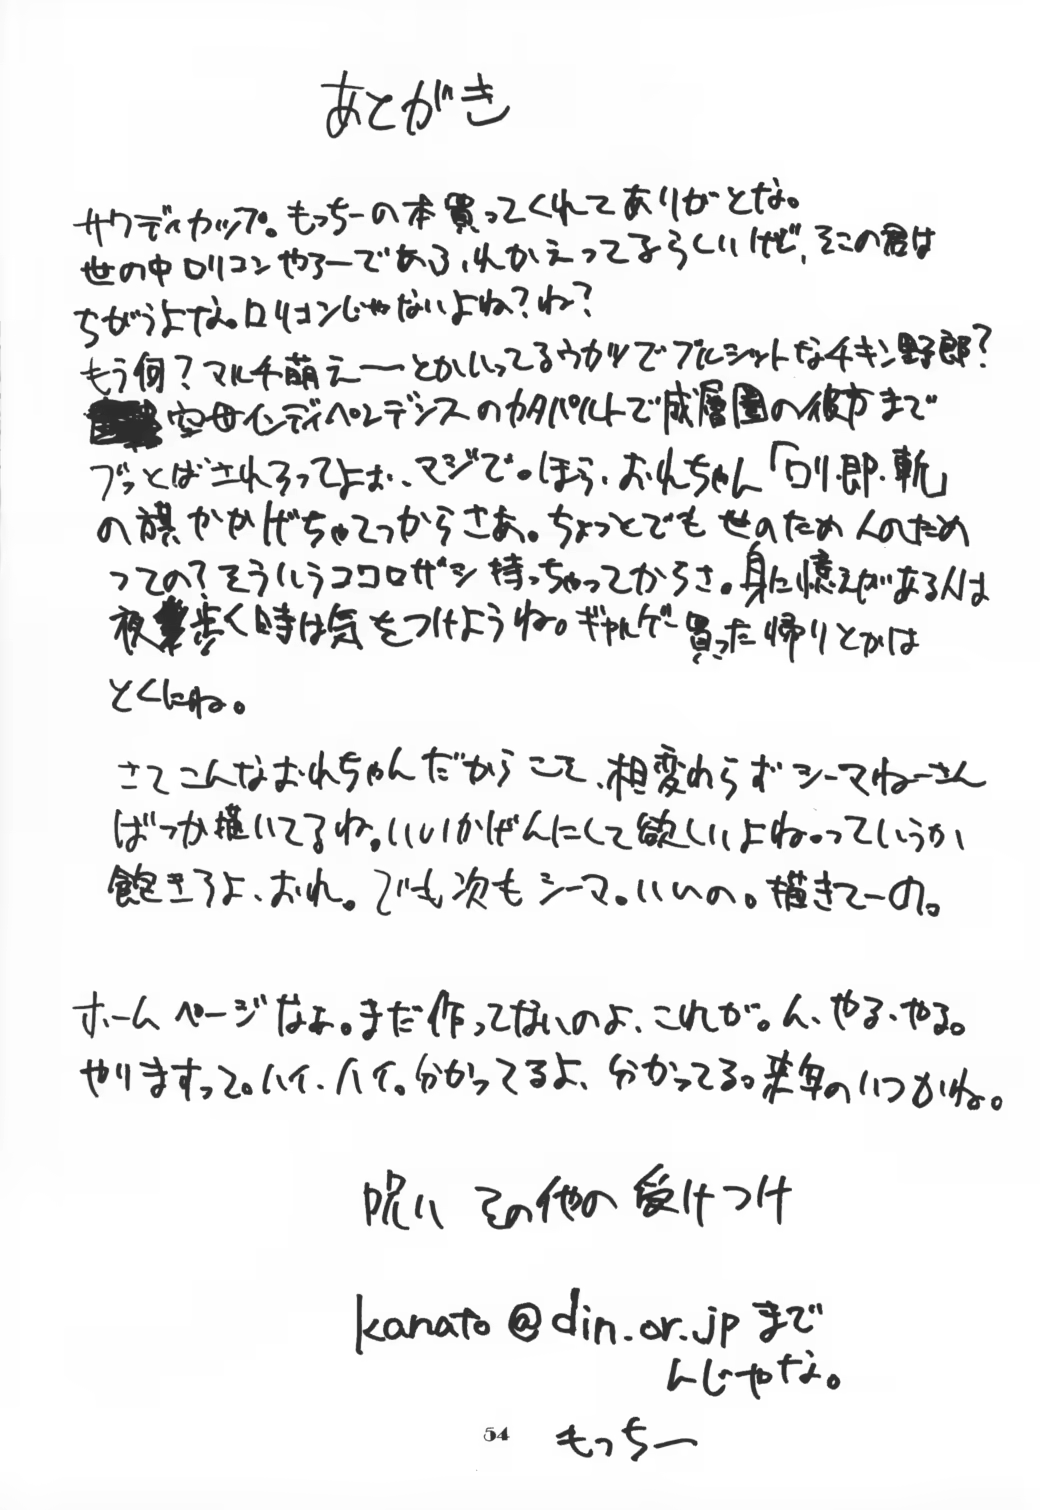 あとがき
サウディカップ。もっちーの本買ってくれてありがとな。
世の中ロリコンやろーであふれかえってるらしいけど、そこの君は
ちがうよな。ロリコンじゃないよね？ね？
もう何？マルチ萌えーとかいってるウカツでブルシットなチキン野郎？
空母インディペンデンスのカタパルトで成層圏の彼方まで
ブッとばされろってよぉ、マジで。ほら、おれちゃん「ロリ・即・斬」
の旗かかげちゃてっからさぁ。ちょっとでも世のため人のため
っての？そういうココロザシ持っちゃってからさ。身に憶えがある人は
夜歩く時は気をつけようね。ギャルゲー買った帰りとかは
とくにね。
さてこんなおれちゃんだからこそ、相変わらずシーマねーさん
ばっか描いてるね。いいかげんにして欲しいよね。っていうか
飽きろよ、おれ。でも次もシーマ。いいの。描きてーの。
ホームページなぁ。まだ作ってないのよ、これが。ん、やる、やる。
やりますって。ハイ、ハイ。分かってるよ、分かってる。来年のいつかね。
呪い その他の受けつけ
kanato@din.or.jpまで
んじゃな。
もっちー
54